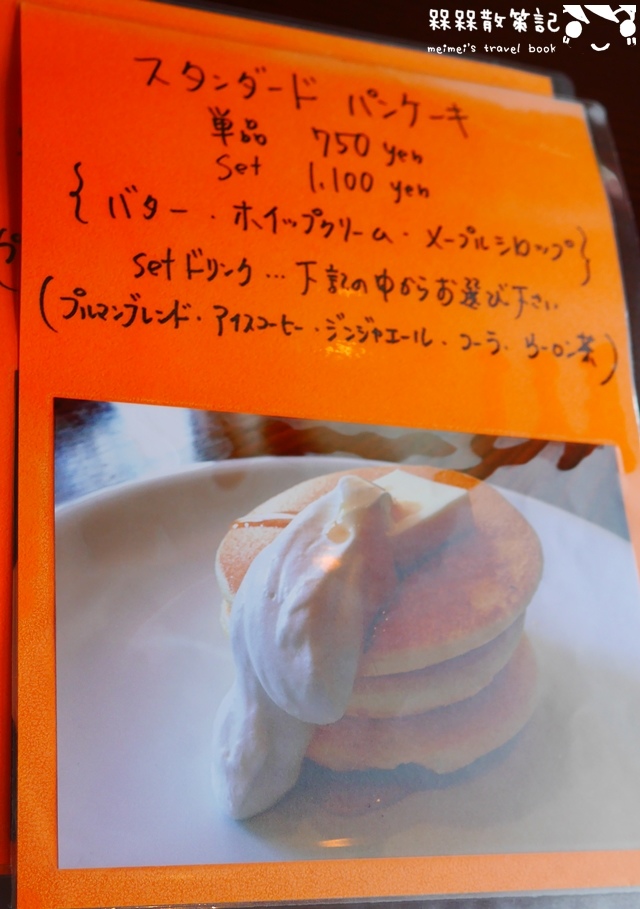 槑槑散策記
meimei's travel book
スタンダード パンケーキ
単品 750 yen
Set 1,100 yen
{ バター・ホイップクリーム・メープルシロップ }
setドリンク…下記の中からお選び下さい
(プルマンブレンド・アイスコーヒー・ジンジャエール・コーラ・ウーロン茶)